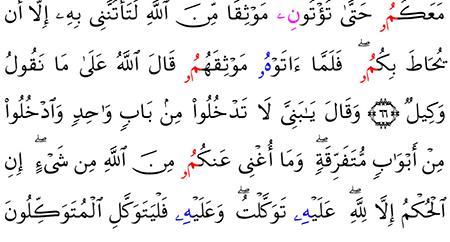 مَعَكُمُۥ حَتَّىٰ تُؤْتُونِۦ مَوْثِقٗا مِّنَ ٱللَّهِ لَتَأْتُنَّنِي بِهِۦٓ إِلَّآ أَن
يُحَاطَ بِكُمُۥۖ فَلَمَّآ ءَاتَوْهُۥ مَوْثِقَهُمُۥ قَالَ ٱللَّهُ عَلَىٰ مَا نَقُولُ
وَكِيلٞ ٦٦ وَقَالَ يَٰبَنِيَّ لَا تَدْخُلُواْ مِنۢ بَابٖ وَٰحِدٖ وَٱدْخُلُواْ
مِنْ أَبْوَٰبٖ مُّتَفَرِّقَةٖۖ وَمَآ أُغْنِي عَنكُمُۥ مِنَ ٱللَّهِ مِن شَيْءٍۖ إِنِ
ٱلْحُكْمُ إِلَّا لِلَّهِۖ عَلَيْهِۦ تَوَكَّلْتُۖ وَعَلَيْهِۦ فَلْيَتَوَكَّلِ ٱلْمُتَوَكِّلُونَ